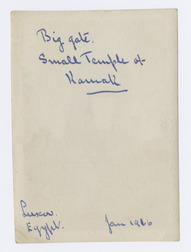 Big gate.
Small Temple of
Karnak
Luxor.
Egypt.
Jan 1926